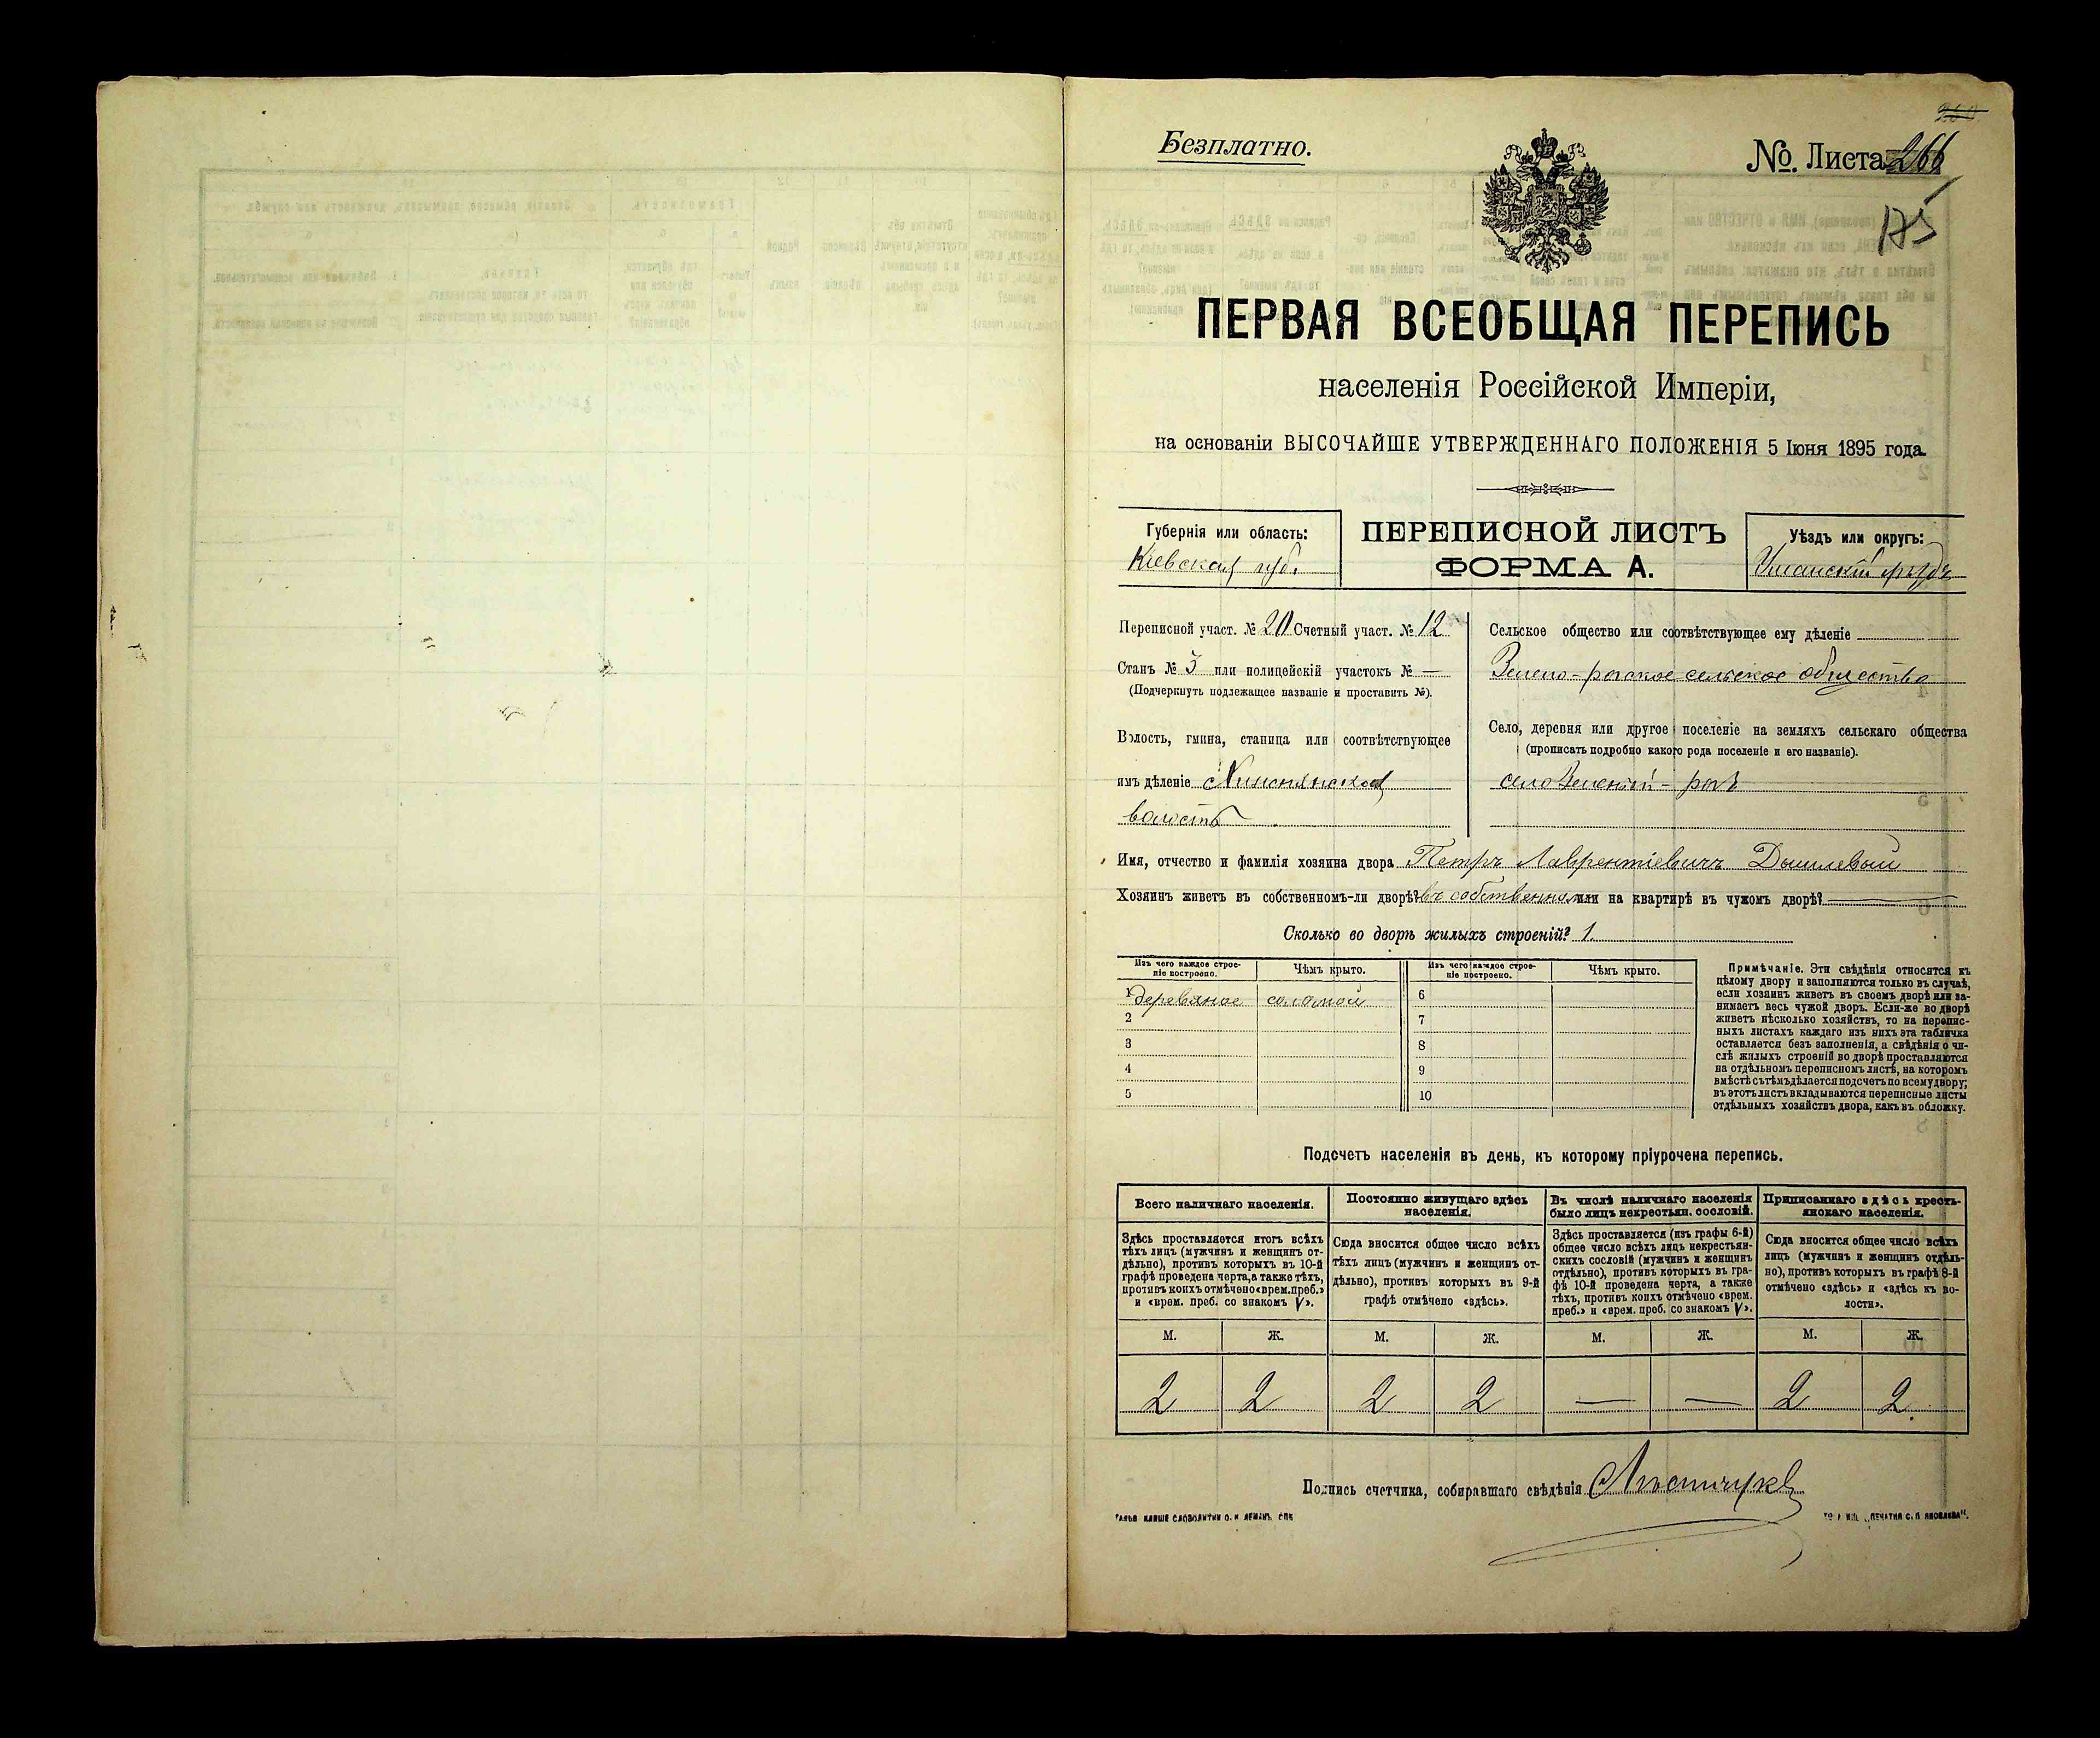 Безплатно.
№. Листа 266
175
ПЕРВАЯ ВСЕОБЩАЯ ПЕРЕПИСЬ
населенія Россійской Имперіи,
на основаніи ВЫСОЧАЙШЕ УТВЕРЖДЕННАГО ПОЛОЖЕНІЯ 5 Іюня 1895 года.
Губернія или область:
Кіевская губ.
ПЕРЕПИСНОЙ ЛИСТЪ
ФОРМА А.
Уѣздъ или округъ:
Уманскій уѣздъ
Переписной участ. № 20 Счетный участ. № 12
Станъ № 3 или полицейскій участокъ № —
(Подчеркнуть подлежащее названіе и проставить №).
Волость, гмина, станица или соотвѣтствующее
имъ дѣленіе
волость
Сельское общество или соотвѣтствующее ему дѣленіе
Зелено-рогское сельское общество
Село, деревня или другое поселеніе на земляхъ сельскаго общества
(прописать подробно какого рода поселеніе и его названіе).
село Зеленый-рогъ
Имя, отчество и фамилія хозяина двора Петръ Лаврентіевичъ Дышлевый
Хозяинъ живетъ въ собственномъ-ли дворѣ? въ собственномъ или на квартирѣ въ чужомъ дворѣ? —
Сколько во дворѣ жилыхъ строеній? 1.
Изъ чего каждое строе-
ніе построено.
Чѣмъ крыто.
Изъ чего каждое строе-
ніе построено.
Чѣмъ крыто.
1 деревяное соломой 6
2 7
3 8
4 9
5 10
Примѣчаніе. Эти свѣдѣнія относятся къ
цѣлому двору и заполняются только въ случаѣ,
если хозяинъ живетъ въ своемъ дворѣ или за-
нимаетъ весь чужой дворъ. Если-же во дворѣ
живетъ нѣсколько хозяйствъ, то на перепис-
ныхъ листахъ каждаго изъ нихъ эта табличка
оставляется безъ заполненія, а свѣдѣнія о чи-
слѣ жилыхъ строеній во дворѣ проставляются
на отдѣльномъ переписномъ листѣ, на которомъ
вмѣстѣ съ тѣмъ дѣлается подсчетъ по всему двору;
въ этотъ листъ вкладываются переписные листы
отдѣльныхъ хозяйствъ двора, какъ въ обложку.
Подсчетъ населенія въ день, къ которому пріурочена перепись.
Всего наличнаго населенія.
Постоянно живущаго здѣсь
населенія.
Въ числѣ наличнаго населенія
было лицъ некрестьян. сословій.
Приписаннаго здѣсь кресть-
янскаго населенія.
Здѣсь проставляется итогъ всѣхъ
тѣхъ лицъ (мужчинъ и женщинъ от-
дѣльно), противъ которыхъ въ 10-й
графѣ проведена черта, а также тѣхъ,
противъ коихъ отмѣчено «врем. преб.»
и «врем. преб. со знакомъ V».
Сюда вносится общее число всѣхъ
тѣхъ лицъ (мужчинъ и женщинъ от-
дѣльно), противъ которыхъ въ 9-й
графѣ отмѣчено «здѣсь».
Здѣсь проставляется (изъ графы 6-й)
общее число всѣхъ лицъ некрестьян-
скихъ сословій (мужчинъ и женщинъ
отдѣльно), противъ которыхъ въ гра-
фѣ 10-й проведена черта, а также
тѣхъ, противъ коихъ отмѣчено «врем.
преб.» и «врем. преб. со знакомъ V».
Сюда вносится общее число всѣхъ
лицъ (мужчинъ и женщинъ отдѣль-
но), противъ которыхъ въ графѣ 8-й
отмѣчено «здѣсь» и «здѣсь къ во-
лости».
М. Ж. М. Ж. М. Ж. М. Ж.
2 2 2 2 — — 2 2.
Подпись счетчика, собиравшаго свѣдѣнія